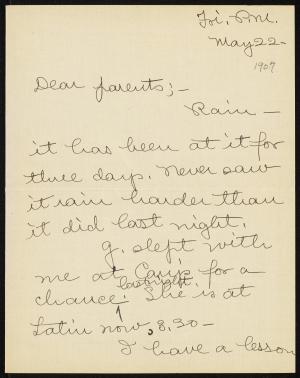 Fri, P.M.
May 22-
1907
Dear parents;-
Rain-
it has been at it for
three days. Never saw
it rain harder than
it did last night.
G. slept with
me at Camp for a
last night.
chance. She is at
Latin now, 8.30-
I have a lesson